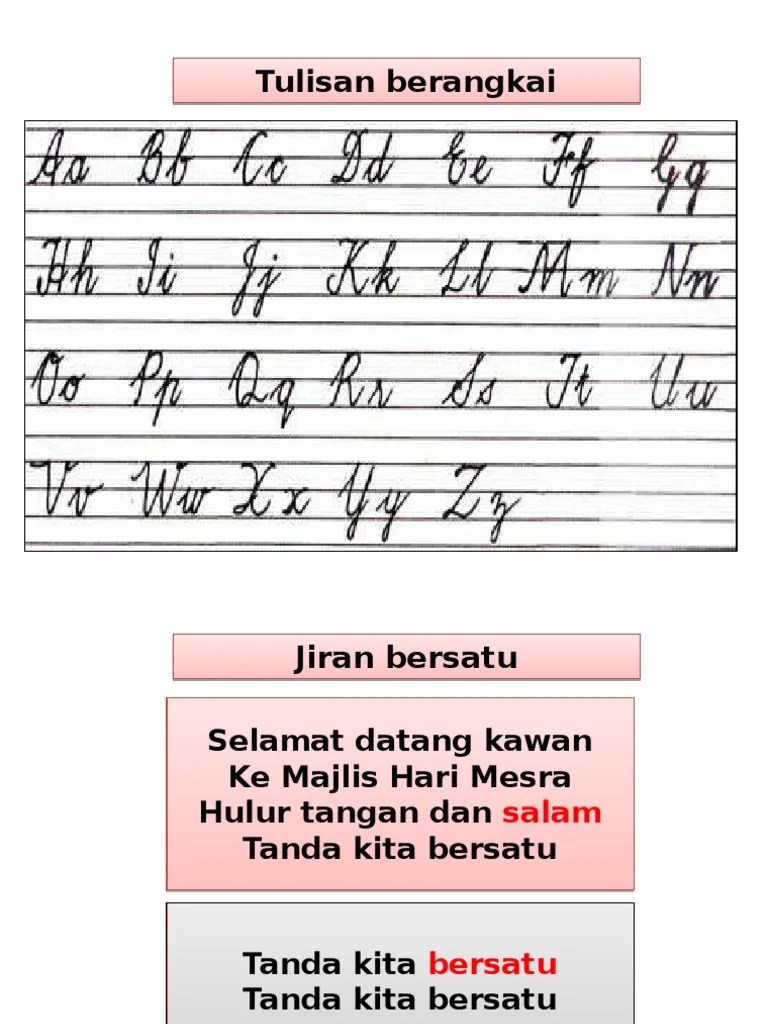 Tulisan berangkai
Aa Bb Cc Dd Ee Ff Gg
Hh Ii Jj Kk Ll Mm Nn
Oo Pp Qq Rr Ss Tt Uu
Vv Ww Xx Yy Zz
Jiran bersatu
Selamat datang kawan
Ke Majlis Hari Mesra
Hulur tangan dan salam
Tanda kita bersatu
Tanda kita bersatu
Tanda kita bersatu